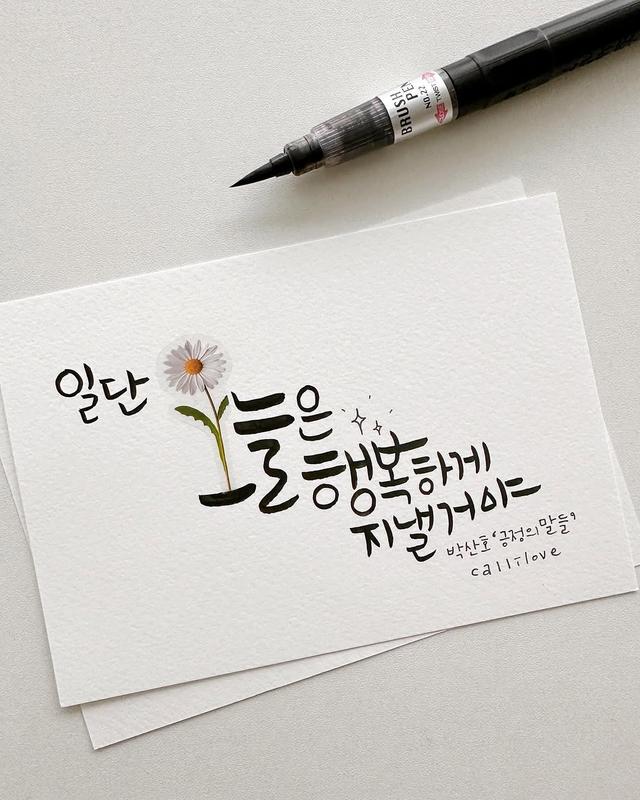 BRUSH PEN
NO.22
TWIST
일단 오늘은
행복하게
지낼거야
박산호 '긍정의 말들'
calli love